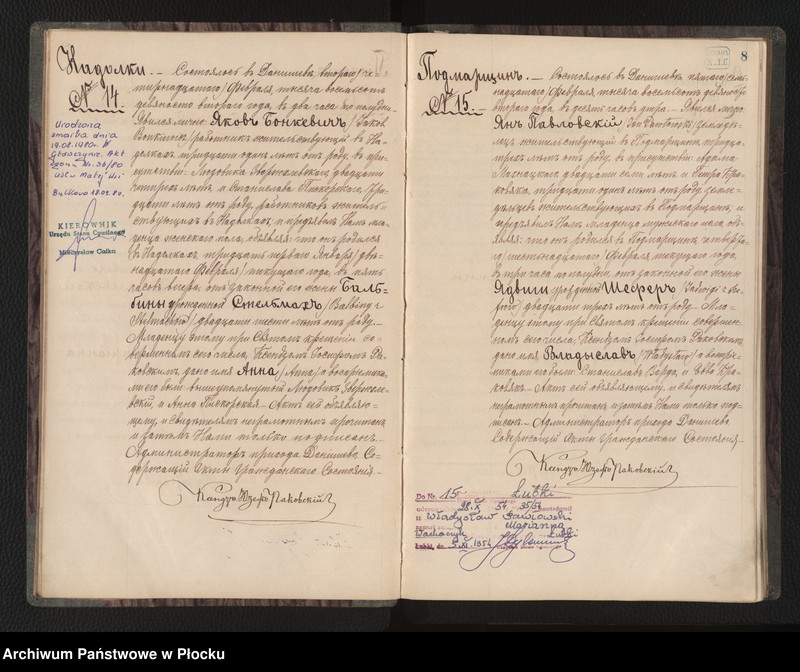 Надолки. — Состоялось въ Данишевѣ, втораго / че-
№ 14.
тырнадцатаго / Февраля, тысяча восемьсотъ
девяносто втораго года, въ два часа по полудни.
Явился лично Яковъ Бонкевичъ / Jakób
работникъ жительствующій въ На-
долкахъ, тридцати одинъ лѣтъ отъ роду, въ при-
сутствіи Людовика двадцати
лѣтъ и Станислава Піекорскаго, тра-
дцати лѣтъ отъ роду, работниковъ житель-
ствующихъ въ Надолкахъ и предъявилъ Намъ мла-
денца женскаго пола, объявляя: что онъ родился
въ Надолкахъ тридцать перваго Января / две-
надцатаго Февраля / текущаго года, въ пять
часовъ вечера, отъ законной его жены Баль-
бины урожденной Стельмахъ / Balbina z
двадцати шести лѣтъ отъ роду.
Младенцу этому при Святомъ крещеніи со-
вершенномъ сего числа, Ксендзомъ Госифомъ Ра-
ковскимъ, дано имя Анна / Anna / а воспріемника-
ми его были вышеупомянутый Людовикъ
и Анна Піекорская. — Актъ сей объявляю-
щему, и свидѣтелямъ неграмотнымъ прочитанъ
и затѣмъ Нами только подписанъ. —
Администраторъ прихода Данишево Со-
держащій Акты Гражданскаго Состоянія. —
Ксендзъ Юзефъ Раковскій
Urodzona
zmarła dnia
Akt
zgonu Nr. 36/80
18.02.80.
KIEROWNIK
Urzędu Stanu Cywilnego
Mieczysław Gałka
8
Подмарщинъ. — Состоялось въ Данишевѣ пятаго / сем-
№ 15. —
надцатаго / Февраля, тысяча восемьсотъ девяносто
втораго года, въ десять часовъ утра. — Явился лично
Янъ Павловскій / Jan Pawłowski / земледѣ-
лецъ жительствующій въ Подмарщинѣ, тридца-
ти трехъ лѣтъ отъ роду, въ присутствіи: Адама
двадцати семи лѣтъ и Петра
тридцати одинъ лѣтъ отъ роду, земле-
дѣльцевъ жительствующихъ въ Подмарщинѣ, и
предъявилъ Намъ младенца мужескаго пола, объ-
являя: что онъ родился въ Подмарщинѣ четверта-
го / шестнадцатаго / Февраля, текущаго года,
въ три часа по полудни, отъ законной его жены
Ядвиги урожденной Шеферъ / Jadwigi z Sze-
двадцати трехъ лѣтъ отъ роду. — Мла-
денцу этому при Святомъ крещеніи совершен-
номъ сего числа, Ксендзомъ Госифомъ Раковскимъ
дано имя Владыславъ / Władysław / а воспріе-
мниками его были: Станиславъ и Ева
Актъ сей объявляющему, и свидѣтелямъ
неграмотнымъ прочитанъ и затѣмъ Нами только под-
писанъ. — Администраторъ прихода Данишево
Содержащій Акты Гражданскаго Состоянія. —
Ксендзъ Юзефъ Раковскій
Do Nr. 15 Lubki
28.X 54 35/54
Władysław Pawłowski
Marianna
Lubki
5.XI.1954
Archiwum Państwowe w Płocku